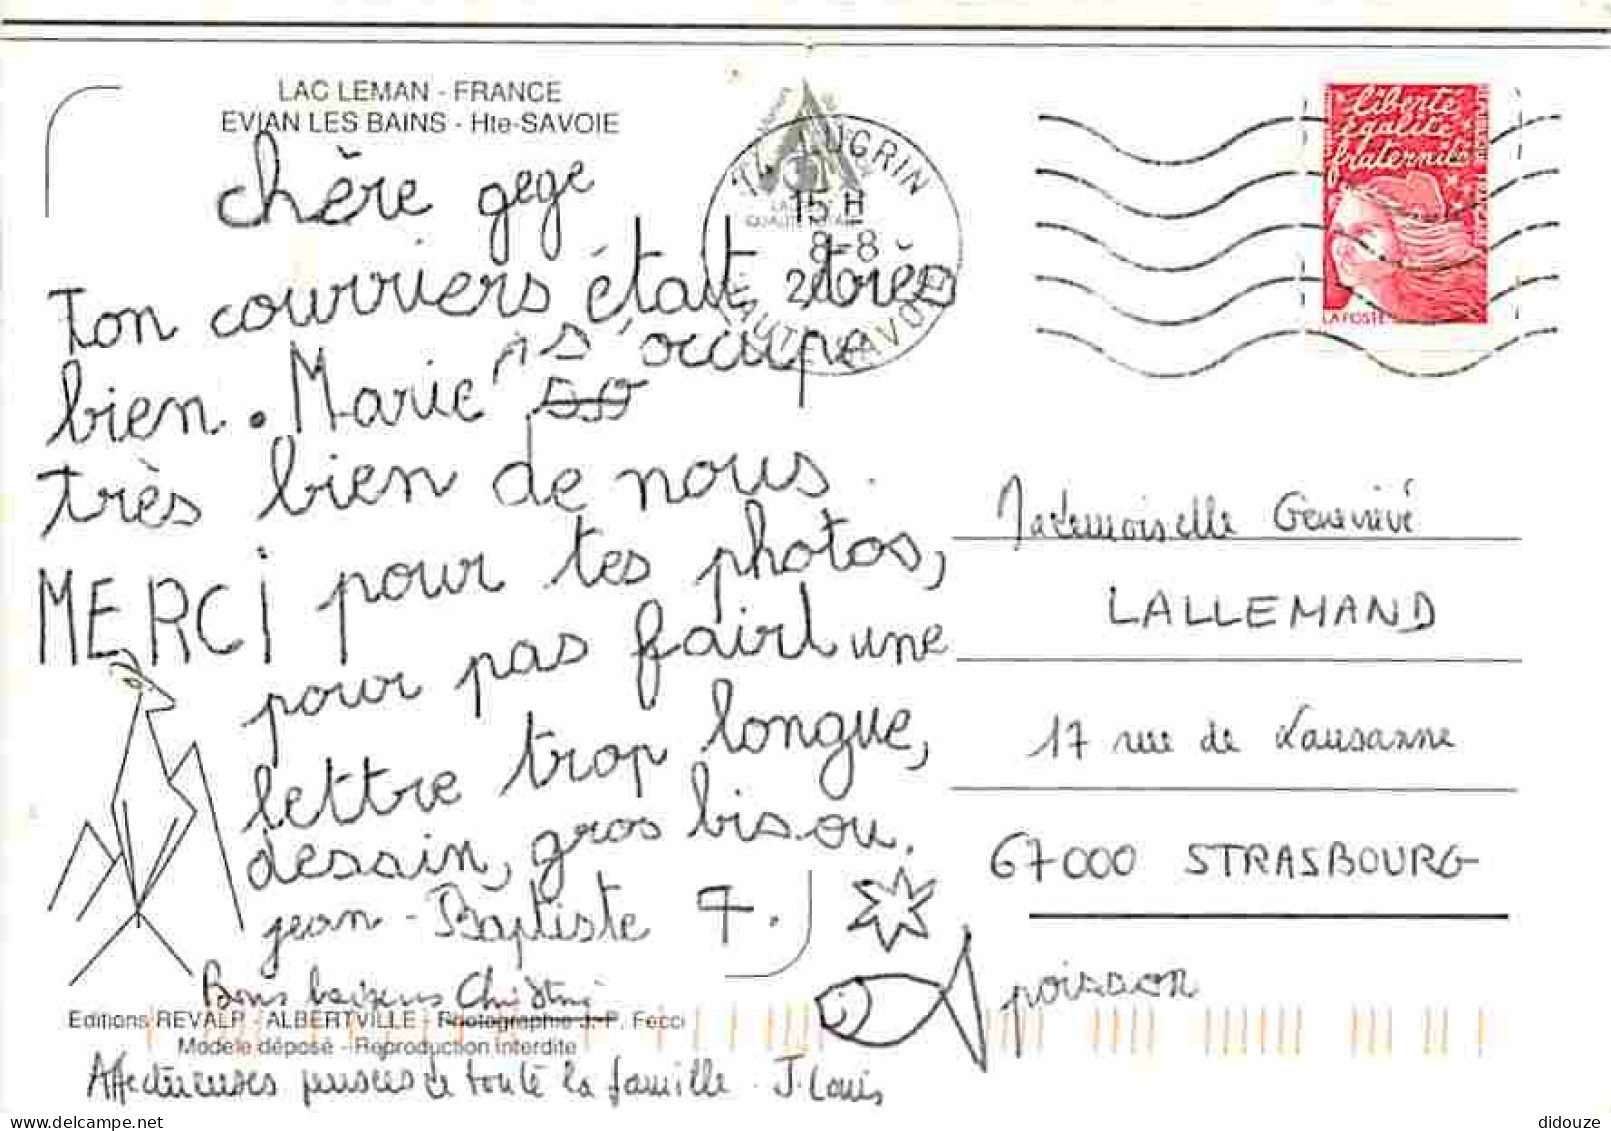 LAC LEMAN - FRANCE
EVIAN LES BAINS - Hte-SAVOIE
chère gege
Ton courriers était très
bien. Marie s'occupe
très bien de nous.
MERCI pour tes photos,
pour pas faire une
lettre trop longue,
dessin, gros bisou.
jean-Baptiste F.
Bons baisers
Editions REVALP - ALBERTVILLE - Photographie J.-P. Fecci
Modèle déposé - Reproduction interdite
Affectueuses pensées de toute la famille. J. Louis
poisson
UGRIN
15 H
8-8
liberté
égalité
fraternité
LA POSTE
Mademoiselle Geneviève
LALLEMAND
17 rue de Lausanne
67000 STRASBOURG
didouze